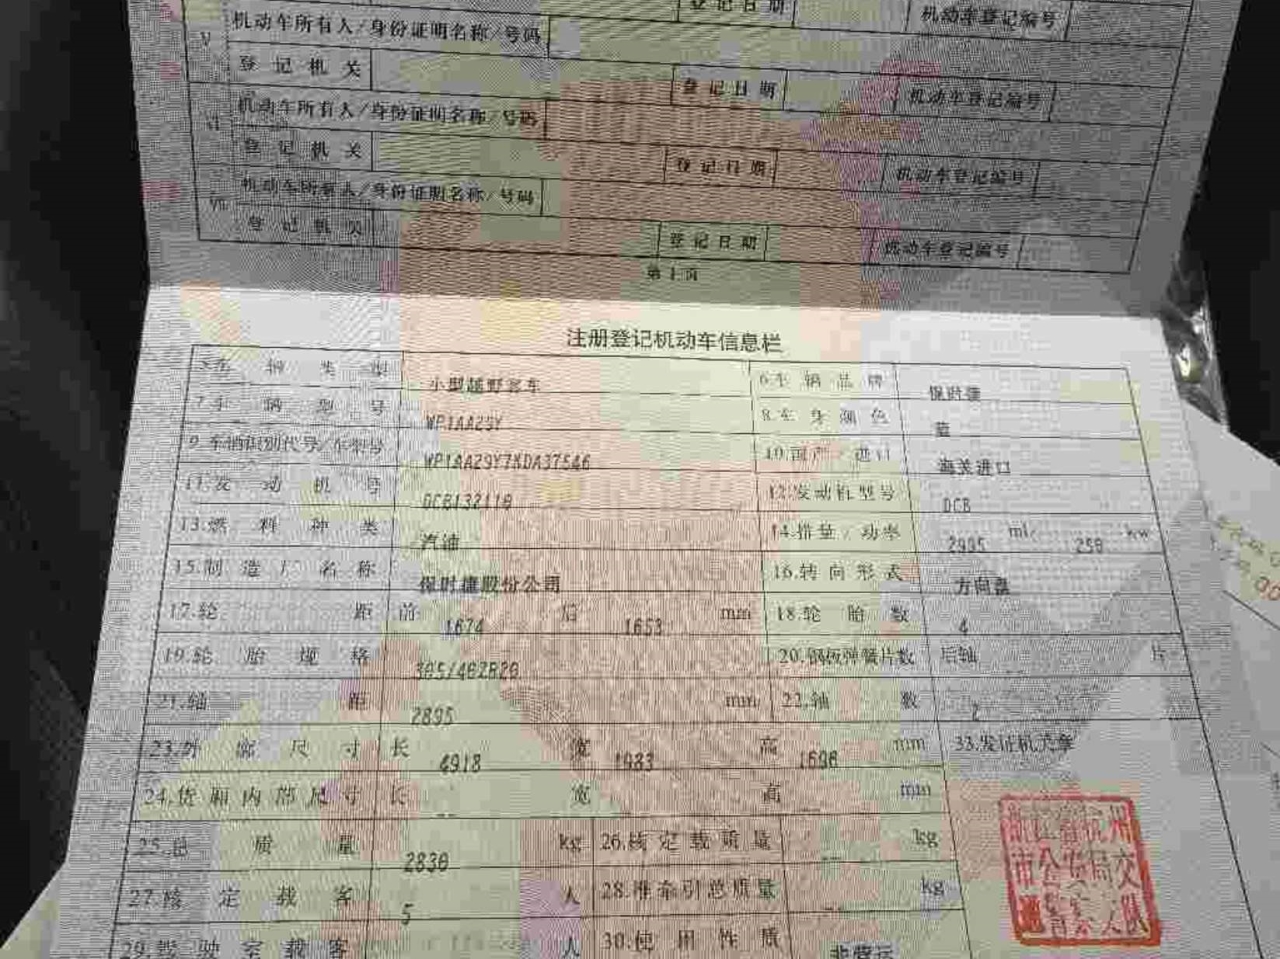 登记日期 机动车登记编号
V 机动车所有人/身份证明名称/号码
登记机关 登记日期 机动车登记编号
VI 机动车所有人/身份证明名称/号码
登记机关 登记日期 机动车登记编号
VII 机动车所有人/身份证明名称/号码
登记机关 登记日期 机动车登记编号
注册登记机动车信息栏
5.车辆类型 小型越野客车 6.车辆品牌 保时捷
7.车辆型号 WP1AA29Y 8.车身颜色 蓝
9.车辆识别代号/车架号 10.国产/进口 海关进口
11.发动机号 12.发动机型号 DCB
13.燃料种类 汽油 14.排量/功率 2995 ml/ 250 kw
15.制造厂名称 保时捷股份公司 16.转向形式 方向盘
17.轮距 前 1674 后 1653 mm 18.轮胎数 4
19.轮胎规格 20.钢板弹簧片数 后轴 -- 片
21.轴距 2895 mm 22.轴数 2
23.外廓尺寸 长 4918 宽 1983 高 1696 mm 33.发证机关章
24.货厢内部尺寸 长 -- 宽 -- 高 -- mm
25.总质量 2830 kg 26.核定载质量 -- kg
27.核定载客 5 人 28.准牵引总质量 -- kg
29.驾驶室载客 人 30.使用性质 非营运
浙江省杭州
市公安局交
通警察支队